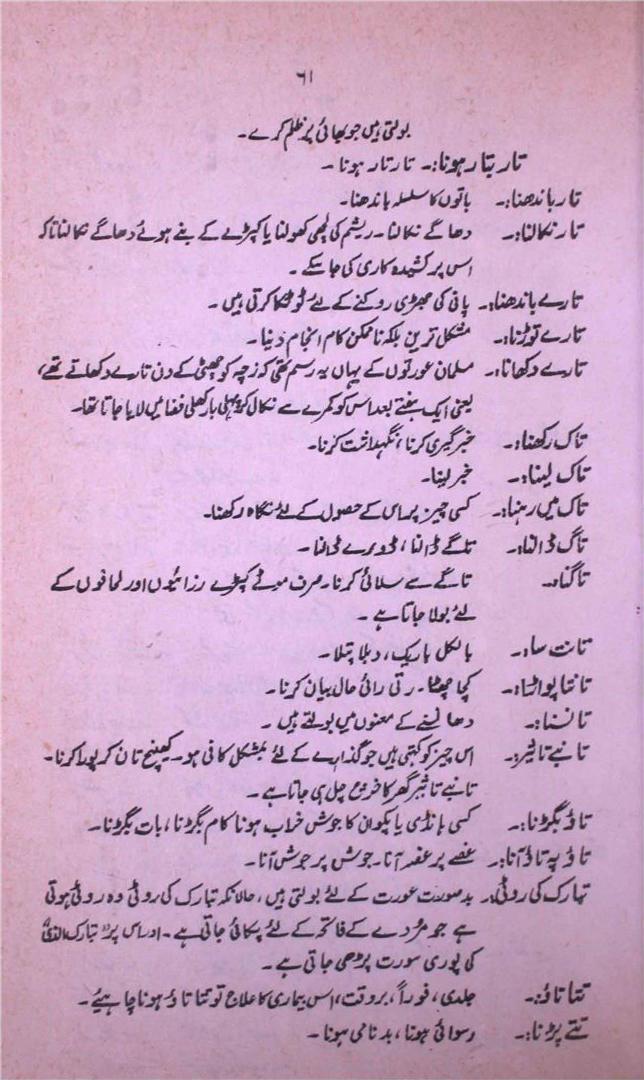 ۶۱
بولتی ہیں جو بھائی پر ظلم کرے۔
تار بتار ہونا:۔ تار تار ہونا۔
تار باندھنا:۔ باتوں کا سلسلہ باندھنا۔
تار نکالنا:۔ دھاگے نکالنا۔ ریشم کی لچھی کھولنا یا کپڑے کے بنے ہوئے دھاگے نکالنا تاکہ
اس پر کشیدہ کاری کی جا سکے۔
تارے باندھنا:۔ پانی کی جھڑی روکنے کے لئے ٹوٹکا کرتی ہیں۔
تارے توڑنا:۔ مشکل ترین بلکہ ناممکن کام انجام دینا۔
تارے دکھانا:۔ مسلمان عورتوں کے یہاں یہ رسم تھی کہ زچہ کو چھٹی کے دن تارے دکھاتے تھے،
یعنی ایک ہفتے بعد اس کو کمرے سے نکال کر پہلی بار کھلی فضا میں لایا جاتا تھا۔
تاک رکھنا:۔ خبر گیری کرنا، نگہداشت کرنا۔
تاک لینا:۔ خبر لینا۔
تاک میں رہنا:۔ کسی چیز پر اس کے حصول کے لئے نگاہ رکھنا۔
تاگ ڈالنا:۔ تلگے ڈالنا، ڈورے ڈالنا۔
تاگنا:۔ تاگے سے سلائی کرنا۔ صرف موٹے کپڑے رزائیوں اور لحافوں کے
لئے بولا جاتا ہے۔
تانت سا:۔ بالکل باریک، دبلا پتلا۔
تانتا پواڑا:۔ کچا چھٹا۔ رتی رائی حال بیان کرنا۔
تانسنا:۔ دھانسنے کے معنوں میں بولتے ہیں۔
تانبے تاثیر:۔ اس چیز کو کہتی ہیں جو گذارے کے لئے بمشکل کافی ہو۔ کھینچ تان کر پورا کرنا۔
تانبے تاثیر گھر کا خرچ چل ہی جاتا ہے۔
تاؤ بگڑنا:۔ کسی ہانڈی یا پکوان کا جوش خراب ہونا کام بگڑنا، بات بگڑنا۔
تاؤ پہ تاؤ آنا:۔ غصے پر غصہ آنا۔ جوش پر جوش آنا۔
تبارک کی روٹی:۔ بدصورت عورت کے لئے بولتی ہیں، حالانکہ تبارک کی روٹی وہ روٹی ہوتی
ہے جو مُردے کے فاتحہ کے لئے پکائی جاتی ہے۔ اور اس پر "تبارک الذی"
کی پوری سورت پڑھی جاتی ہے۔
تتا تاؤ:۔ جلدی، فوراً، بروقت، اس بیماری کا علاج تو تتا تاؤ ہونا چاہیے۔
تتے پڑنا:۔ رسوائی ہونا، بدنامی ہونا۔